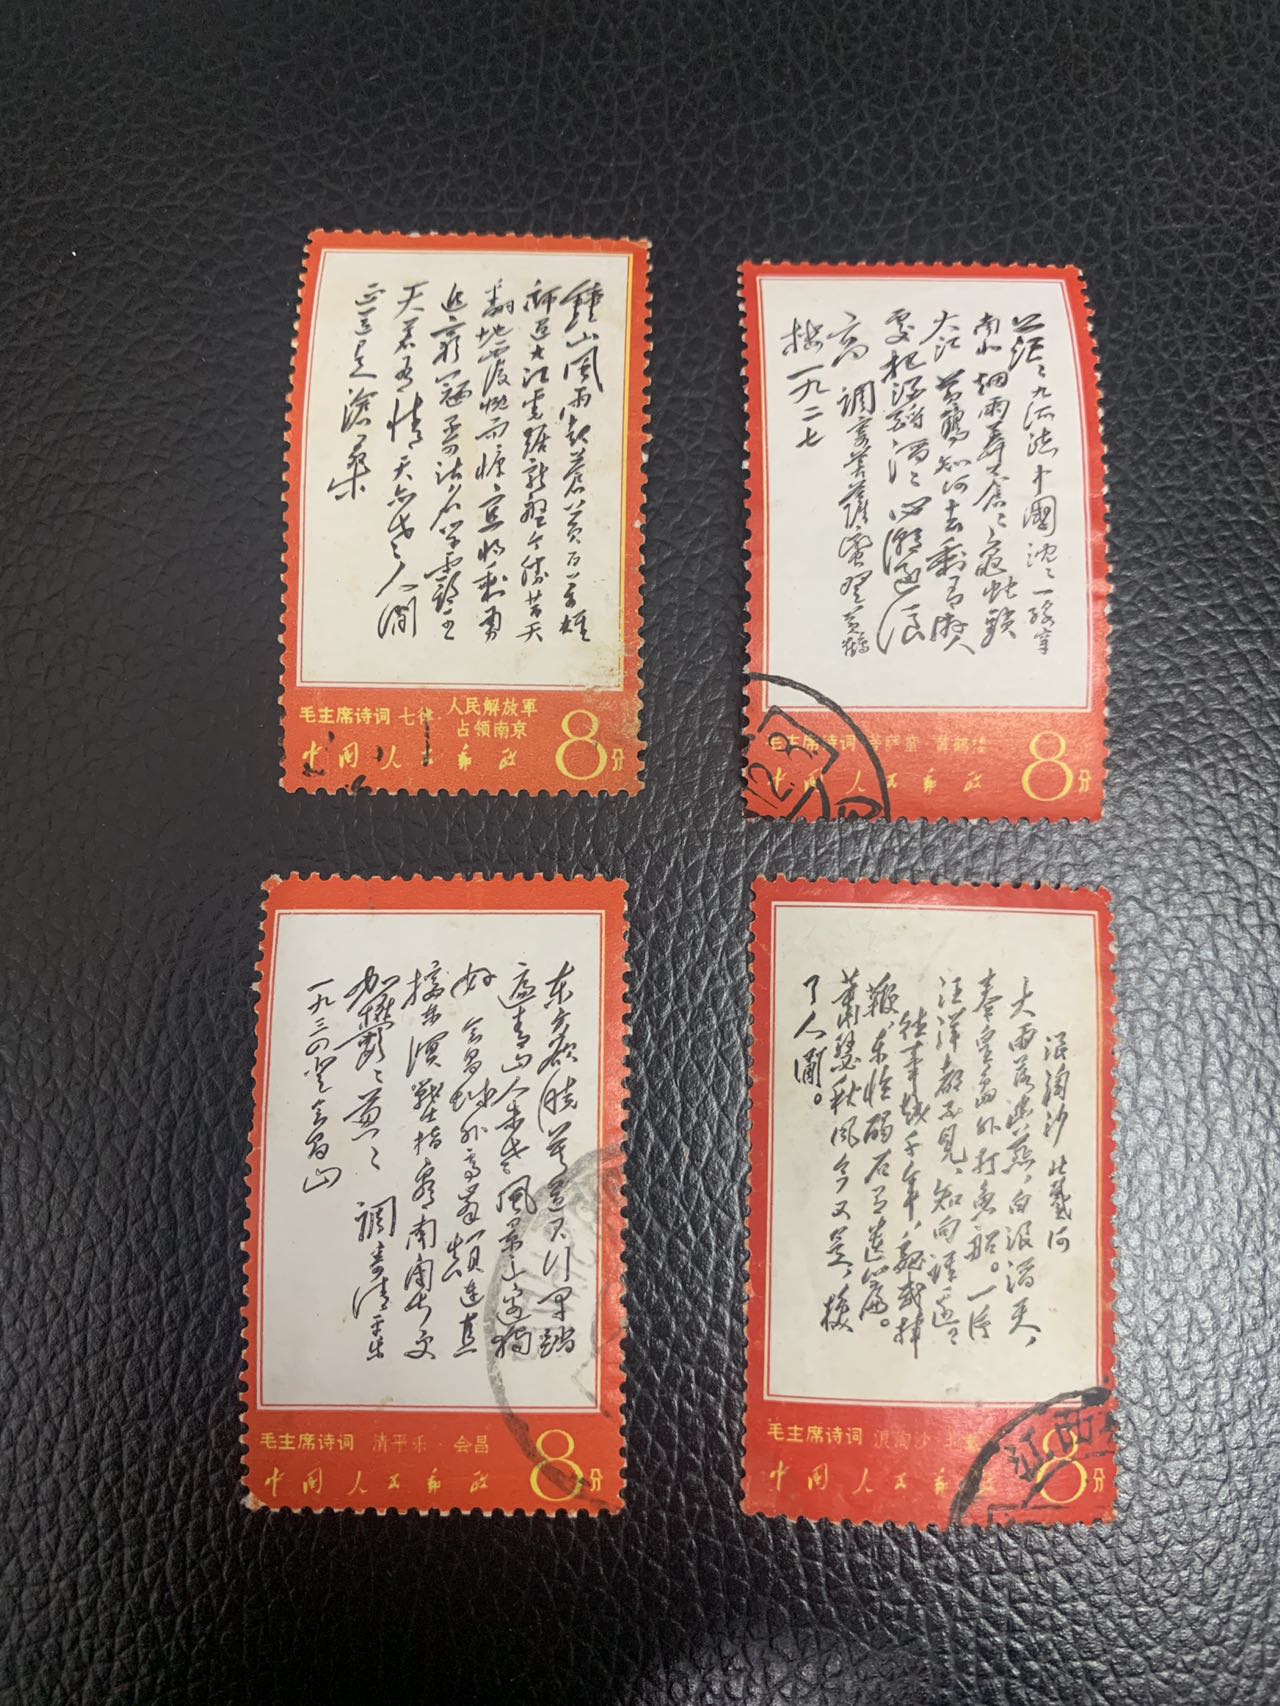 鍾山風雨起蒼黃百萬雄
師過大江虎踞龍盤今勝昔天
翻地覆慨而慷宜將剩勇
追窮寇不可沽名學霸王
天若有情天亦老人間
正道是滄桑
毛主席诗词 七律·人民解放軍
占领南京
中国人民邮政 8分
茫茫九派流中國沉沉一線穿
南北烟雨莽蒼蒼龜蛇鎖
大江 黃鶴知何去剩有遊人
處把酒酹滔滔心潮逐浪
高 調寄菩薩蠻登黃鶴
樓一九二七
毛主席诗词 菩萨蛮·黄鹤楼
中国人民邮政 8分
东方欲曉莫道君行早踏
遍青山人未老風景这边獨
好 會昌城外高峯顛連直
接东溟戰士指看南粵更
加鬱鬱葱葱 調寄清平乐
一九三四登會昌山
毛主席诗词 清平乐·会昌
中国人民邮政 8分
浪淘沙 北戴河
大雨落幽燕，白浪滔天，
秦皇島外打魚船。一片
汪洋都不見，知向誰邊
往事越千年，魏武挥
鞭，东临碣石有遗篇。
蕭瑟秋風今又是，換
了人间。
毛主席诗词 浪淘沙·北戴
中国人民邮政 8分
江西